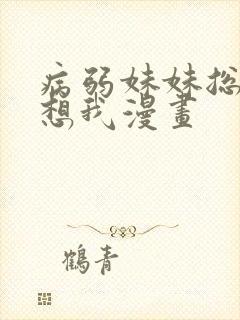 病弱妹妹总
想我漫畫
鶴青